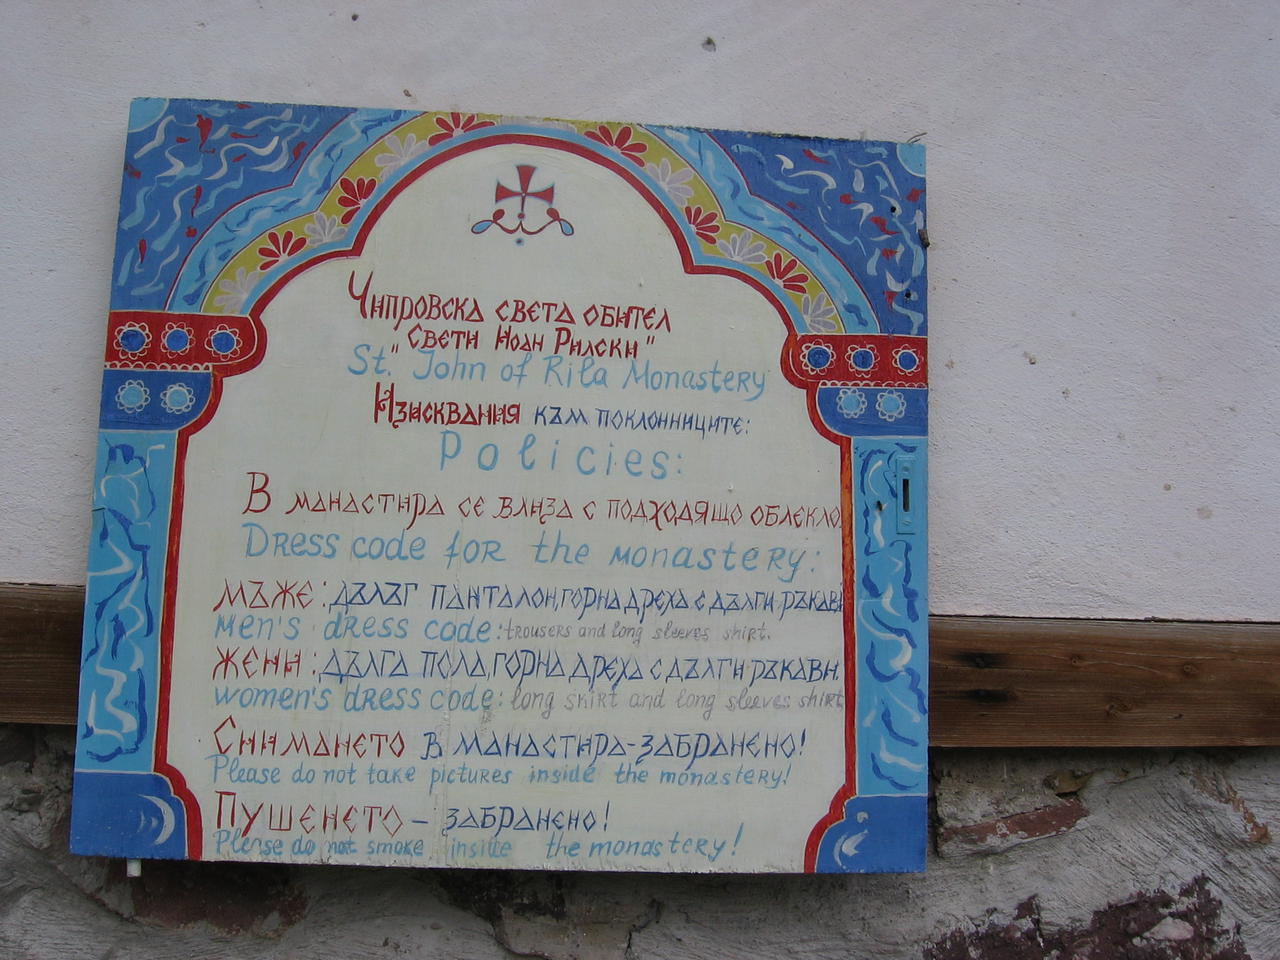 Чипровска света обител
"Свети Иоан Рилски"
St. John of Rila Monastery
Изисквания към поклонниците:
Policies:
В манастира се влиза с подходящо облекло
Dress code for the monastery:
мъже: дълъг панталон, горна дреха с дълги ръкави
men's dress code: trousers and long sleeves shirt.
жени: дълга пола, горна дреха с дълги ръкави.
women's dress code: long skirt and long sleeves shirt
Снимането в манастира - забранено!
Please do not take pictures inside the monastery!
Пушенето - забранено!
Please do not smoke inside the monastery!